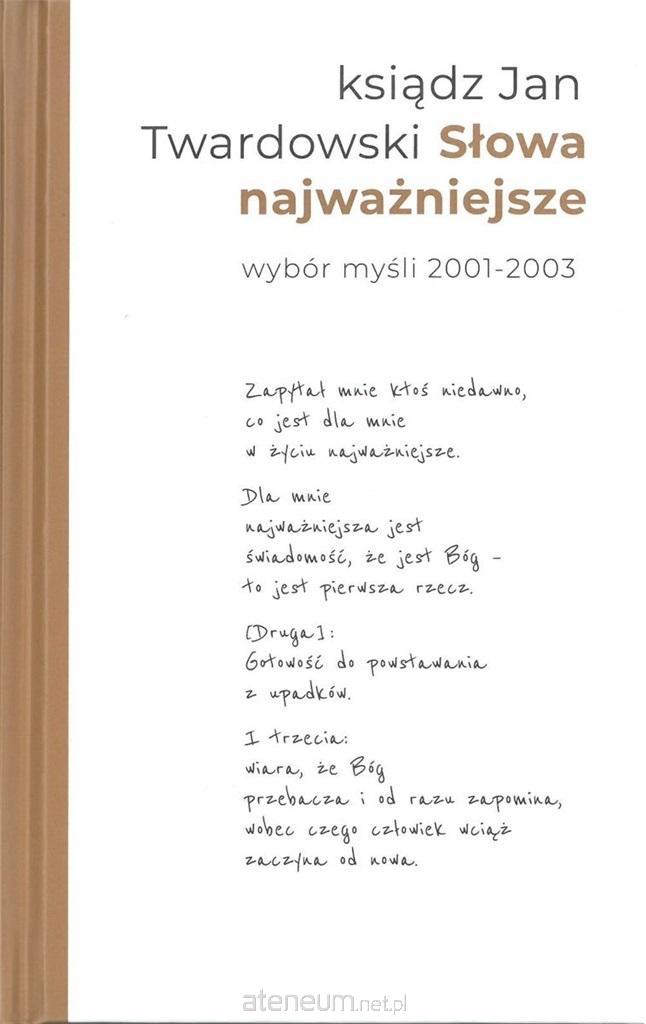 ksiądz Jan
Twardowski Słowa
najważniejsze
wybór myśli 2001-2003
Zapytał mnie ktoś niedawno,
co jest dla mnie
w życiu najważniejsze.
Dla mnie
najważniejsza jest
świadomość, że jest Bóg –
to jest pierwsza rzecz.
[Druga]:
Gotowość do powstawania
z upadków.
I trzecia:
wiara, że Bóg
przebacza i od razu zapomina,
wobec czego człowiek wciąż
zaczyna od nowa.
ateneum.net.pl